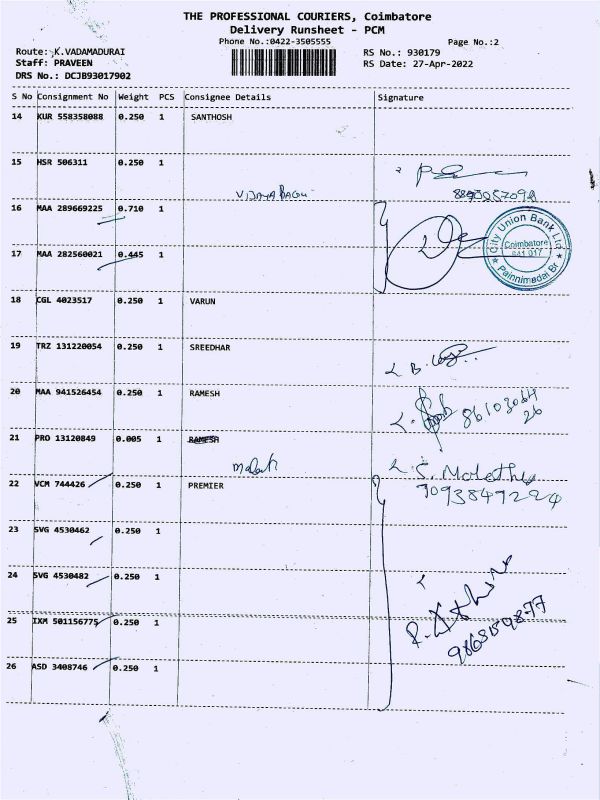 THE PROFESSIONAL COURIERS, Coimbatore
Delivery Runsheet - PCM
Phone No.:0422-3505555 Page No.:2
Route: K.VADAMADURAI RS No.: 930179
Staff: PRAVEEN RS Date: 27-Apr-2022
DRS No.: DCJB93017902
S No Consignment No Weight PCS Consignee Details Signature
14 KUR 558358088 0.250 1 SANTHOSH
15 HSR 506311 0.250 1
16 MAA 289669225 0.710 1
City Union Bank Ltd
Coimbatore
641 017
17 MAA 282560021 0.445 1
18 CGL 4023517 0.250 1 VARUN
19 TRZ 131220054 0.250 1 SREEDHAR
20 MAA 941526454 0.250 1 RAMESH
8610306426
21 PRO 13120849 0.005 1 RAMESH
S. Malathi
22 VCM 744426 0.250 1 PREMIER
23 SVG 4530462 0.250 1
24 SVG 4530482 0.250 1
25 IXM 501156775 0.250 1
26 ASD 3408746 0.250 1